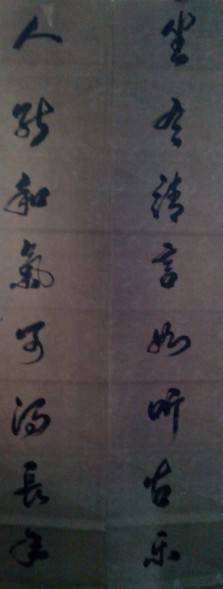 坐有清言如听古乐
人能和氣可得長年